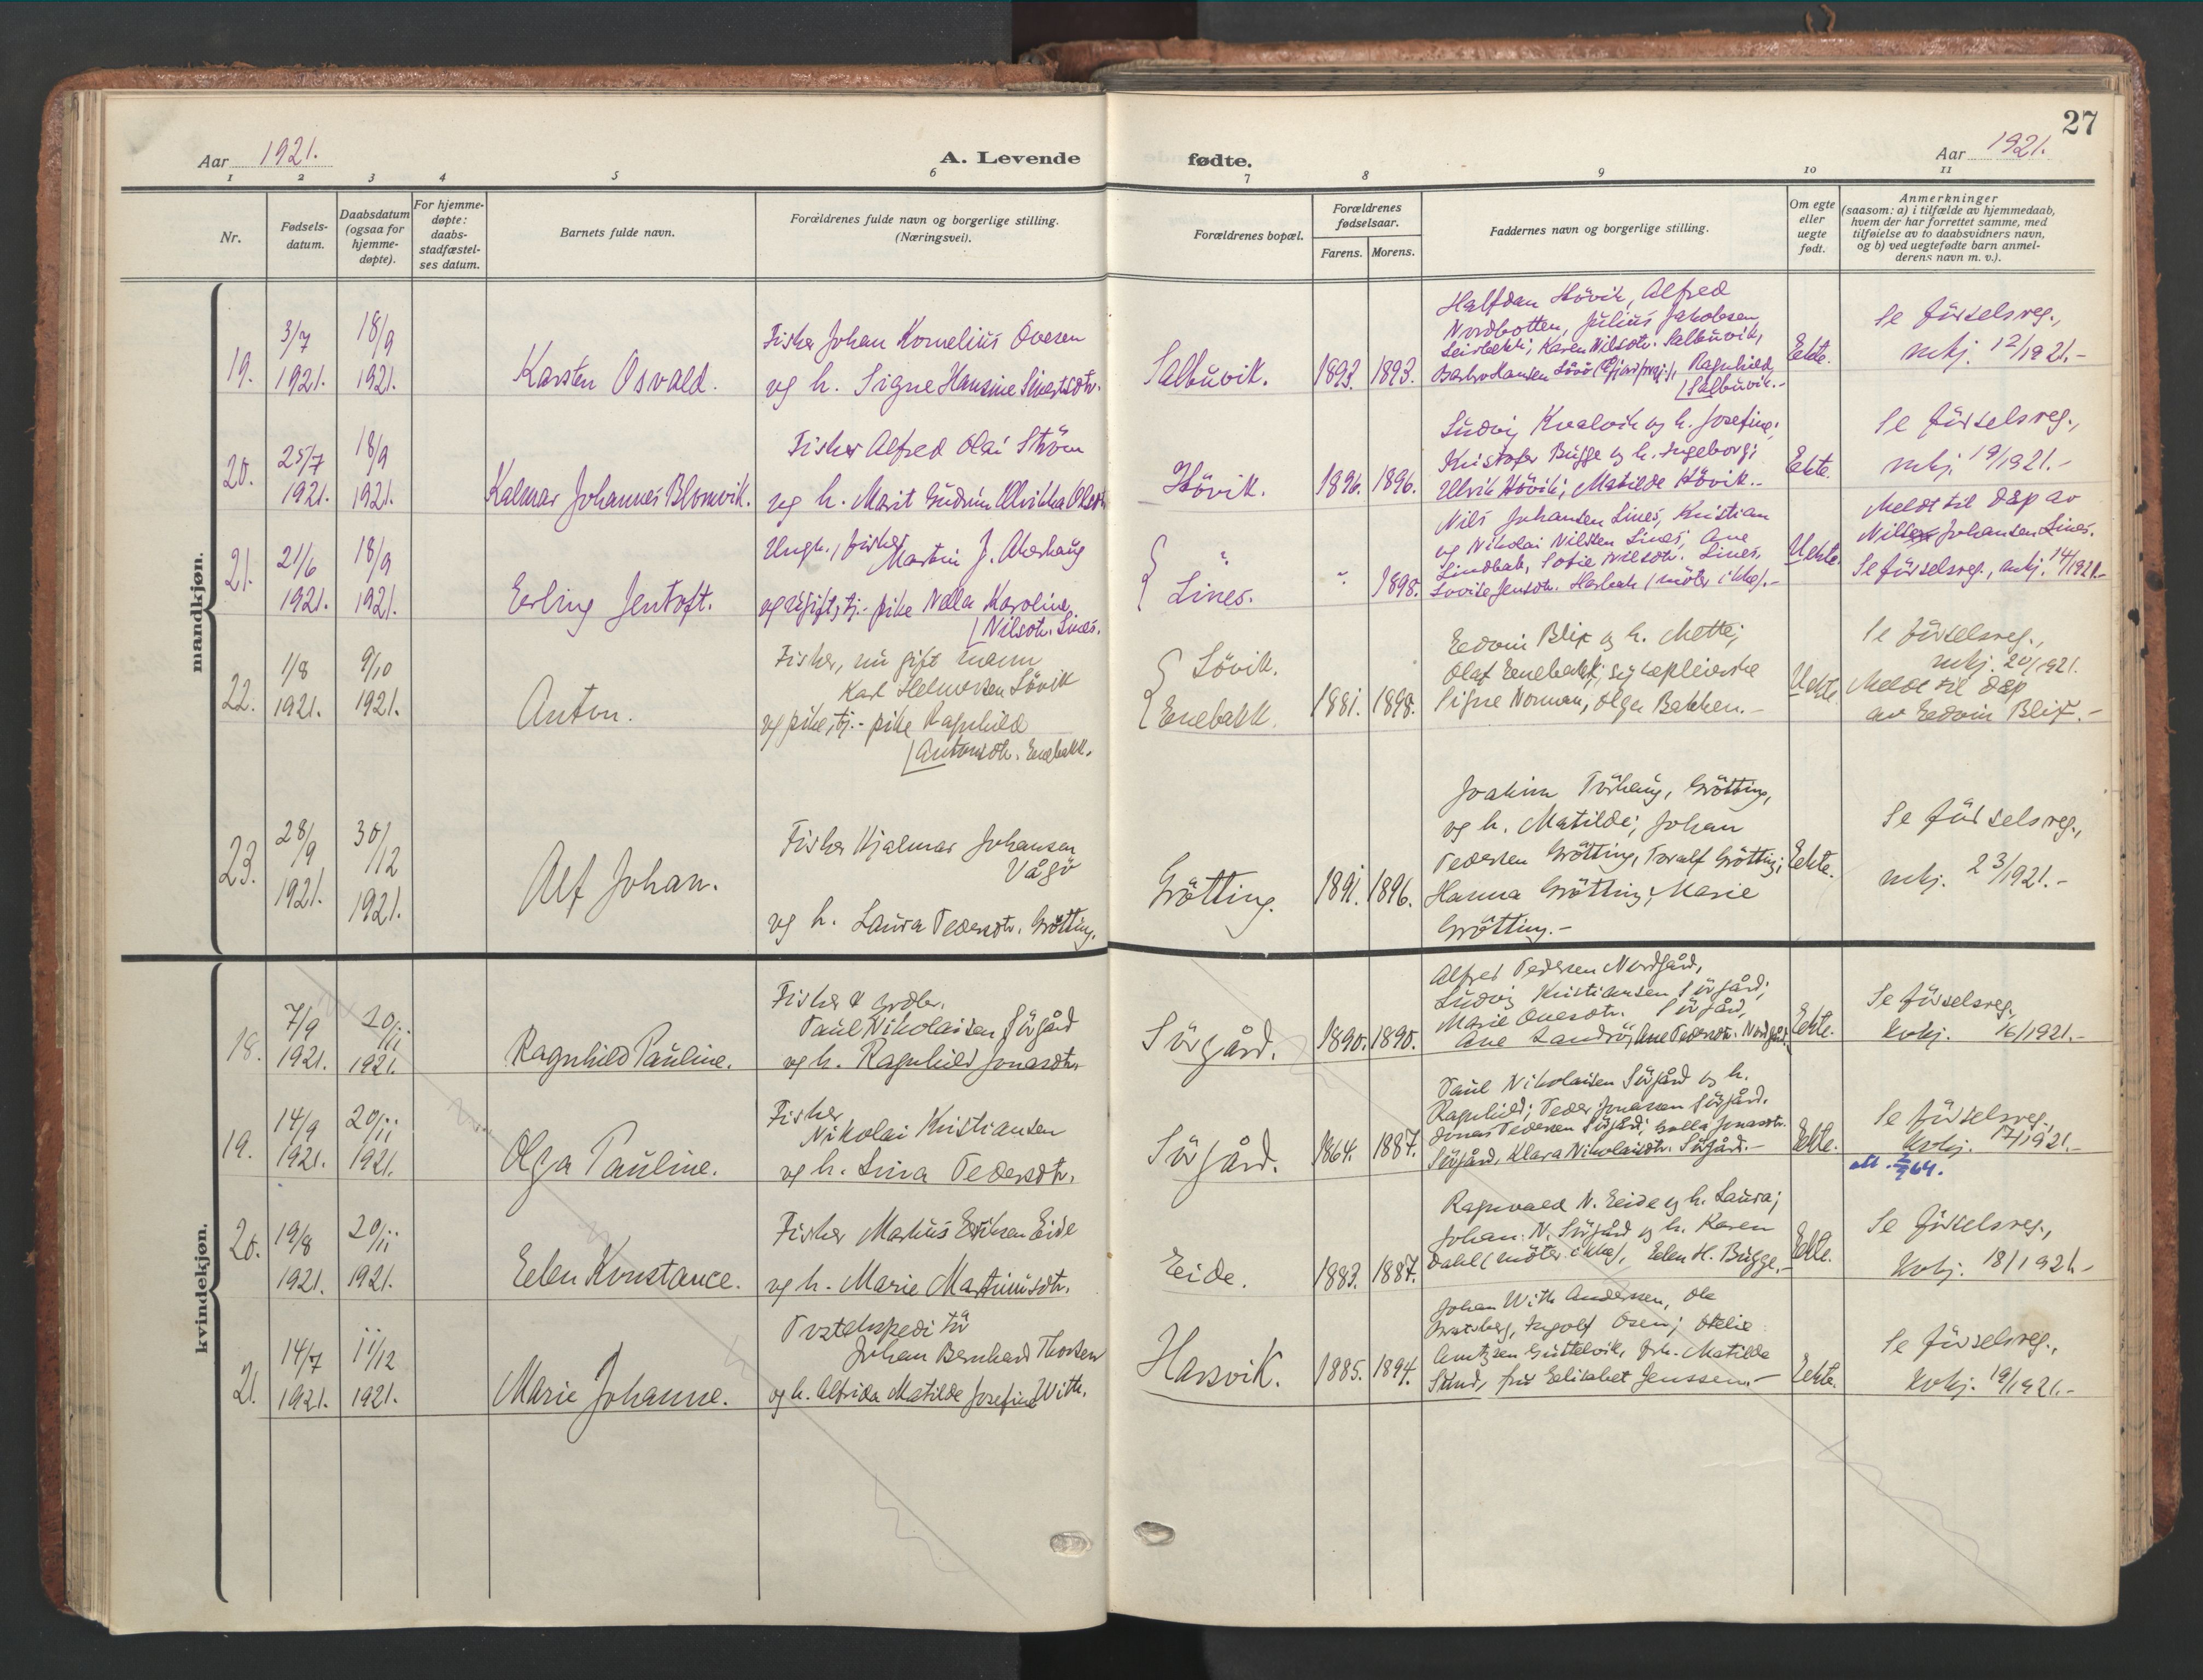 27
Aar 1921.
A. Levende fødte.
Aar 1921.
1 2 3 4 5 6 7 8 9 10 11
Nr.
Fødsels-
datum.
Daabsdatum
(ogsaa for
hjemme-
døpte).
For hjemme-
døpte:
daabs-
stadfæstel-
ses datum.
Barnets fulde navn.
Forældrenes fulde navn og borgerlige stilling.
(Næringsvei).
Forældrenes bopæl.
Forældrenes
fødselsaar.
Farens. Morens.
Faddernes navn og borgerlige stilling.
Om egte
eller
uegte
født.
Anmerkninger
(saasom: a) i tilfælde av hjemmedaab,
hvem der har forrettet samme, med
tilføielse av to daabsvidners navn,
og b) ved uegtefødte barn anmel-
derens navn m. v.).
mandkjøn.
19.
3/7
1921.
18/9
1921.
Karsten Osvald.
Fisker Johan Kornelius Ovesen
og h. Signe Hansine Sivertsdtr.
Salbuvik.
1893. 1893.
Halfdan Hövik, Alfred
Nordbotten, Julius Jakobsen
Karen Nilsdtr. Salbuvik,
Ragnhild
Salbuvik.-
Ekte.
Se födselsreg.,
mkj. 12/1921.-
20.
25/7
1921.
18/9
1921.
Kalmar Johannes Blomvik.
Fisker Alfred Olai Ström
og h. Marit Gudrun Ulrikka Olsdtr.
Hövik.
1896. 1896.
Ludvig Kvalvik og h. Josefine;
Kristofer Bugge og h. Ingeborg;
Ulrik Hövik; Matilde Hövik.-
Ekte.
Se födselsreg.,
mkj. 19/1921.-
21.
21/6
1921.
18/9
1921.
Erling Jentoft.
Ungk., fisker
Martin J. Akerhaug
og ugift, tj.-pike Nella Karoline
Nilsdtr. Lines.
"
Lines.
" 1898.
Nils Johansen Lines, Kristian
og Nikolai Nilssen Lines, Ane
Lindbak, Sofie Nilsdtr. Lines,
Lovise Jensdtr. Harbak (möter ikke).-
Uekte.
Meldt til dåp av
Nils Johansen Lines.
Se födselsreg., mkj. 14/1921.-
22.
1/8
1921.
9/10
1921.
Anton.
Fisker, nu gift mann
Karl Helmersen Lövik
og pike, tj.-pike Ragnhild
Antonsdtr. Enebakk.
Lövik.
Enebakk.
1881. 1898.
Edvin Blix og h. Mette;
Olaf Enebakk; sykepleierske
Signe Norman, Olga Bakken.-
Uekte.
Se födselsreg.,
mkj. 20/1921.
Meldt til dåp
av Edvin Blix.-
23.
28/9
1921.
30/12
1921.
Alf Johan.
Fisker Hjalmar Johansen
Vågö
og h. Laura Pedersdtr. Grötting.
Grötting.
1891. 1896.
Joakim Turhaug, Grötting,
og h. Matilde; Johan
Pedersen Grötting, Toralf Grötting;
Hanna Grötting, Marie
Grötting.-
Ekte.
Se födselsreg.,
mkj. 23/1921.-
kvindekjøn.
18.
7/9
1921.
20/11
1921.
Ragnhild Pauline.
Fisker & grdbr.
Paul Nikolaisen Sörgård
og h. Ragnhild Jonasdtr.
Sörgård.
1890. 1890.
Alfred Pedersen Nordgård,
Ludvig Kristiansen Sörgård;
Marie Ovesdtr. Sörgård,
Ane Sandrö, Ane Pedersdtr. Nordgård.
Ekte.
Se födselsreg.,
kvkj. 16/1921.-
19.
14/9
1921.
20/11
1921.
Olga Pauline.
Fisker
Nikolai Kristiansen
og h. Lina Pedersdtr.
Sörgård.
1864. 1887.
Paul Nikolaisen Sörgård og h.
Ragnhild; Peder Jonassen Sörgård.
Jonas Pedersen Sörgård; Jonasdtr.
Sörgård, Klara Nikolaisdtr. Sörgård.-
Ekte.
Se födselsreg.,
kvkj. 17/1921.-
att. 64.
20.
19/8
1921.
20/11
1921.
Eden Konstance.
Fisker Markus Eriksen Eide
og h. Marie Martinusdtr.
Eide.
1883. 1887.
Ragnvald N. Eide og h. Laura;
Johan N. Sörgård og h. Karen
Dahl (möter ikke), Eden H. Bugge.-
Ekte.
Se födselsreg.,
kvkj. 18/1921.-
21.
14/7
1921.
11/12
1921.
Marie Johanne.
Postekspeditör
Johan Bernhard Thorsen
og h. Alfrida Matilde Josefine With.
Harsvik.
1885. 1894.
Johan With Andersen, Ole
Ingolf Osen; Otelie
Arntzen Guttelvik, frk. Matilde
Sund, fru Elisabet Jenssen.-
Ekte.
Se födselsreg.,
kvkj. 19/1921.-